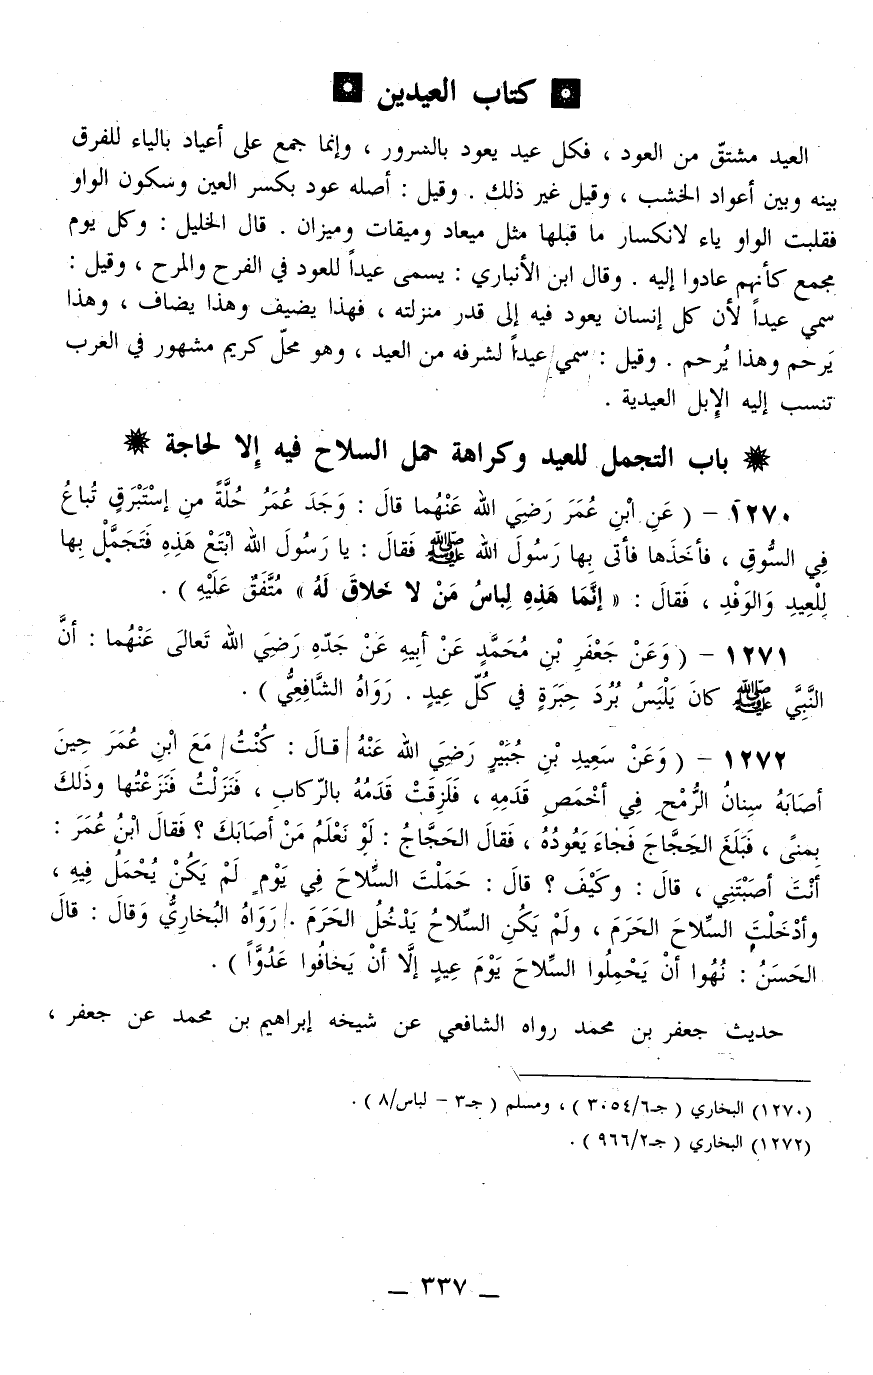 كتاب العيدين
العيد مشتقّ من العود ، فكل عيد يعود بالسرور ، وإنما جمع على أعياد بالياء للفرق
بينه وبين أعواد الخشب ، وقيل غير ذلك . وقيل : أصله عود بكسر العين وسكون الواو
فقلبت الواو ياء لانكسار ما قبلها مثل ميعاد وميقات وميزان . قال الخليل : وكل يوم
مجمع كأنهم عادوا إليه . وقال ابن الأنباري : يسمى عيداً للعود في الفرح والمرح ، وقيل :
سمي عيداً لأن كل إنسان يعود فيه إلى قدر منزلته ، فهذا يضيف وهذا يضاف ، وهذا
يَرحم وهذا يُرحم . وقيل : سمي عيداً لشرفه من العيد ، وهو محلّ كريم مشهور في العرب
تنسب إليه الإبل العيدية .
باب التجمل للعيد وكراهة حمل السلاح فيه إلا لحاجة
١٢٧٠ – ( عَنِ ابْنِ عُمَرَ رَضِيَ الله عَنْهُما قالَ : وَجَدَ عُمَرُ حُلَّةً منِ إسْتَبْرَقٍ تُباعُ
فِي السُّوقِ ، فأخَذَها فأتى بِها رَسُولَ الله ﷺ فَقالَ : يا رَسُولَ الله ابْتَعْ هَذِهِ فَتَجَمَّلْ بِها
لِلْعِيدِ وَالوَفْدِ ، فَقالَ : « إنَّمَا هَذِهِ لِباسُ مَنْ لا خَلاقَ لَهُ » مُتَّفَقٌ عَلَيْهِ ) .
١٢٧١ – ( وَعَنْ جَعْفَرِ بْنِ مُحَمَّدٍ عَنْ أبِيهِ عَنْ جَدّهِ رَضِيَ الله تَعالَى عَنْهُما : أنَّ
النَّبِيَّ ﷺ كانَ يَلْبَسُ بُرْدَ حِبَرَةٍ في كُلّ عِيدٍ . رَوَاهُ الشَّافِعِيُّ ) .
١٢٧٢ – ( وَعَنْ سَعِيدِ بْنِ جُبَيْرٍ رَضِيَ الله عَنْهُ قالَ : كُنْتُ مَعَ ابْنِ عُمَرَ حِينَ
أصَابَهُ سِنانُ الرُّمْحِ فِي أخْمَصِ قَدَمِهِ ، فَلَزِقَتْ قَدَمُهُ بالرّكابِ ، فَنَزَلْتُ فَنَزَعْتُها وذَلكَ
بِمنىً ، فَبَلَغَ الحَجَّاجَ فَجاءَ يَعُودُهُ ، فَقالَ الحَجَّاجُ : لَوْ نَعْلَمُ مَنْ أصَابَكَ ؟ فَقالَ ابْنُ عُمَرَ :
أنْتَ أصَبْتَنِي ، قالَ : وكَيْفَ ؟ قالَ : حَمَلْتَ السِّلاحَ فِي يَوْمٍ لَمْ يَكُنْ يُحْمَلُ فِيهِ ،
وأدْخَلْتَ السِّلاحَ الحَرَمَ ، ولَمْ يَكُنِ السِّلاحُ يَدْخُلُ الحَرَمَ . رَوَاهُ البُخارِيُّ وَقالَ : قالَ
الحَسَنُ : نُهُوا أنْ يَحْمِلُوا السِّلاحَ يَوْمَ عِيدٍ إلَّا أنْ يَخافُوا عَدُوَّاً ) .
حديث جعفر بن محمد رواه الشافعي عن شيخه إبراهيم بن محمد عن جعفر ،
(١٢٧٠) البخاري ( جـ٣٠٥٤/٦ ) ، ومسلم ( جـ٣ – لباس/٨ ) .
(١٢٧٢) البخاري ( جـ٩٦٦/٢ ) .
— ٣٣٧ —